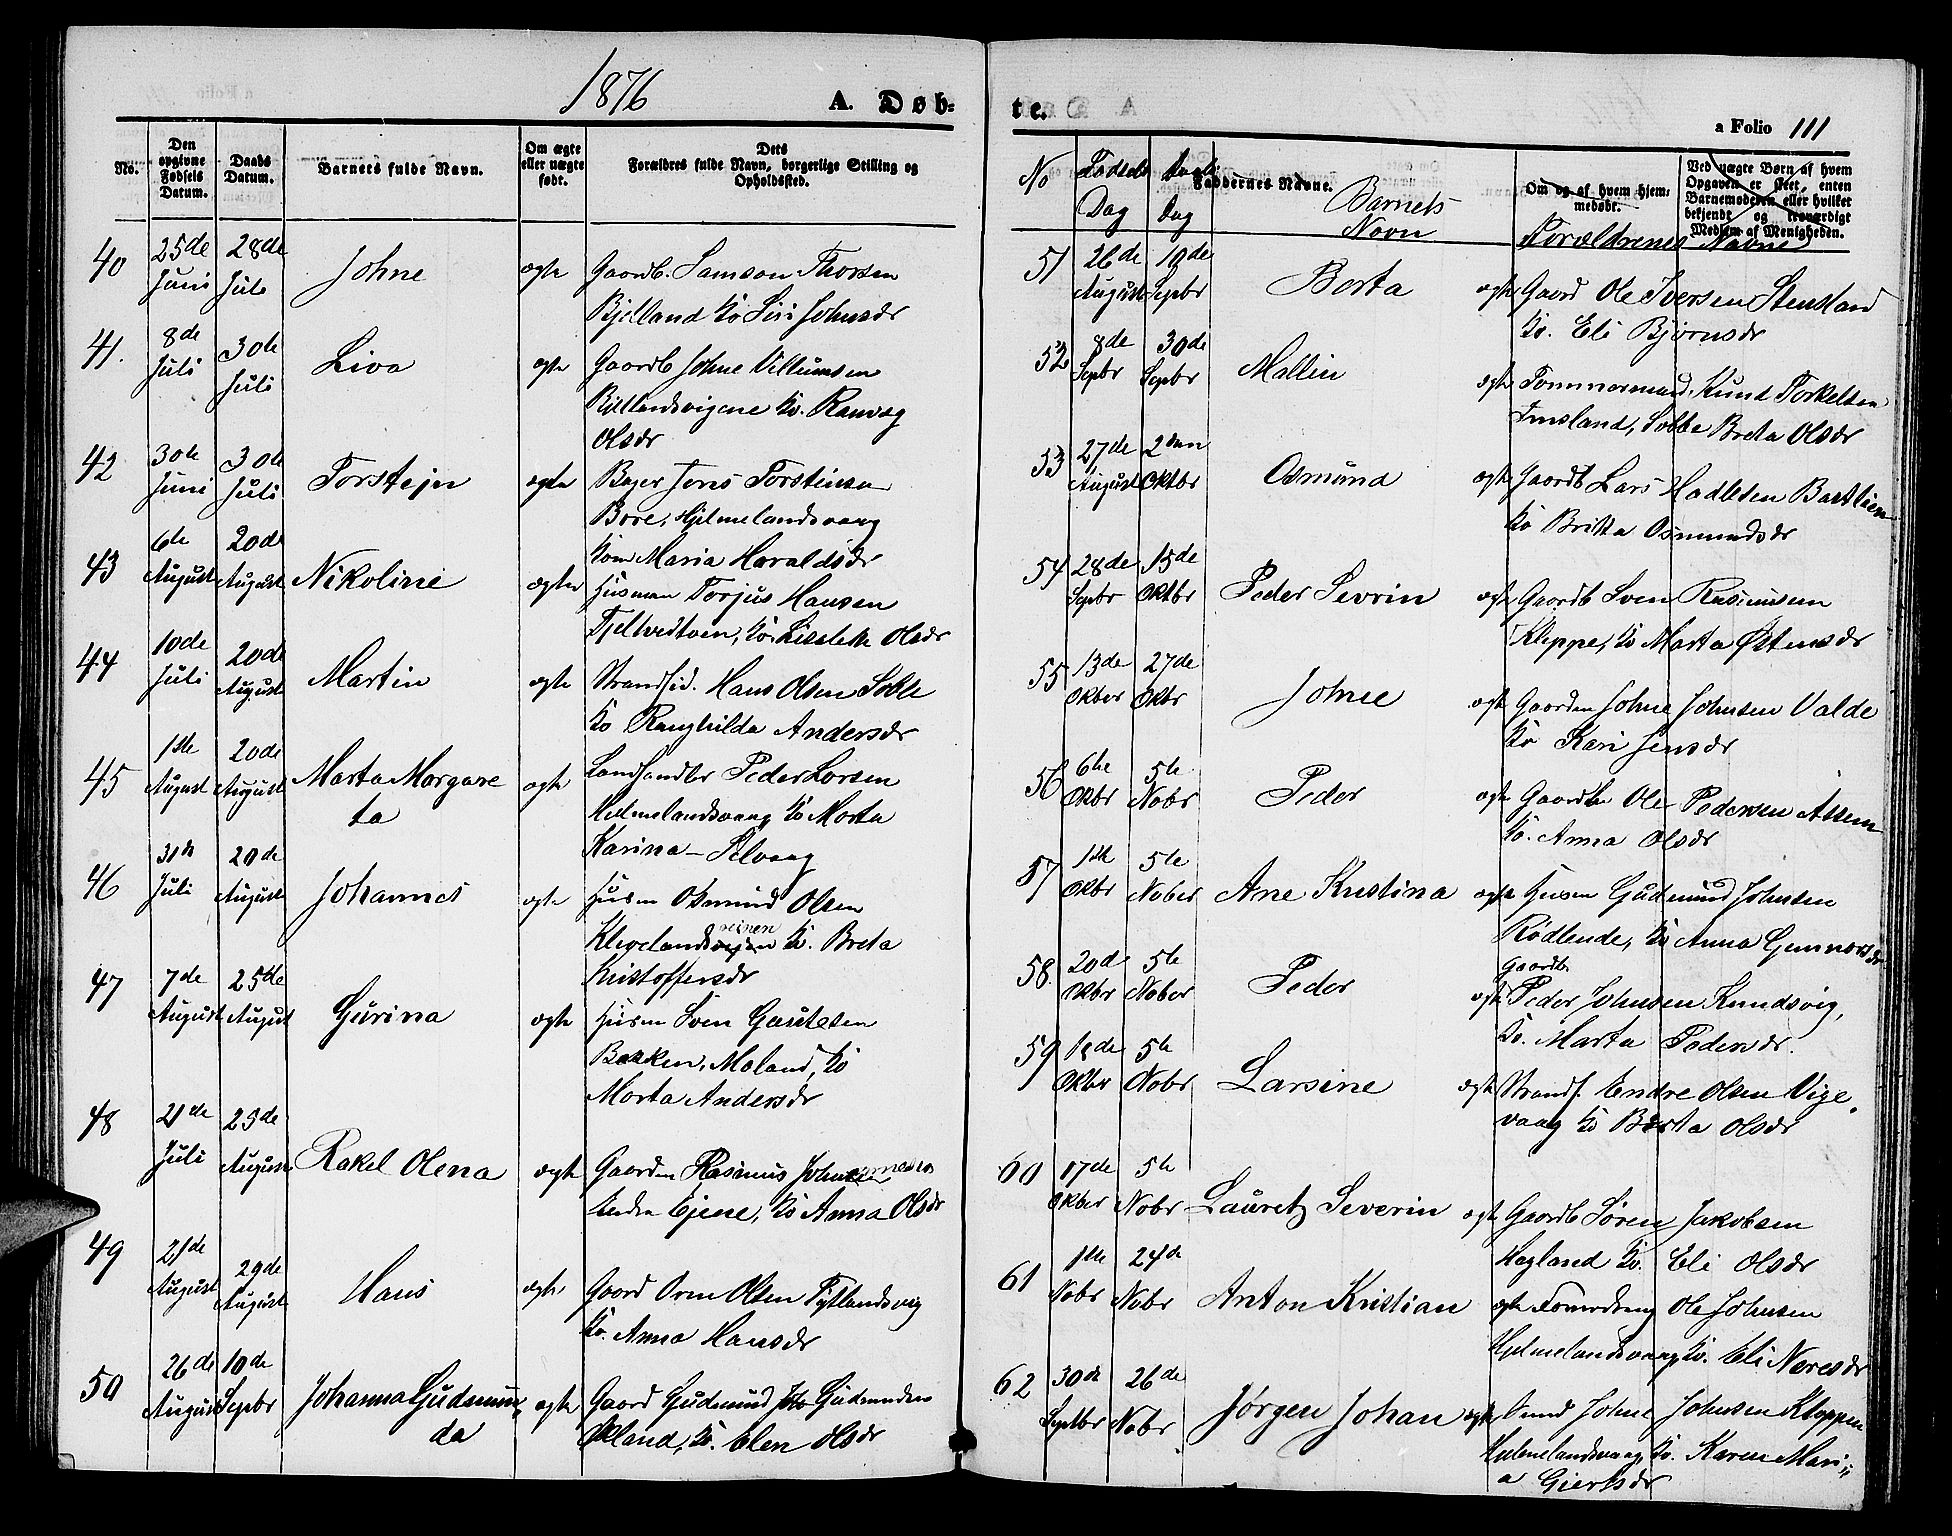 1876
A. Døb-
No.
Den opgivne Fødsels Datum.
Daabs Datum.
Barnets fulde Navn.
Om ægte eller uægte født.
Dets Forældres fulde Navn, borgerlige Stilling og Opholdssted.
40 25de Juni 28de Juli Johne ægte Gaardb. Samson Thorsen
Bjelland ko Siri Johnsdr
41. 8de Juli 30te Juli Liva ægte Gaardb Johne Villumsen
Bjellandsvigene ko. Ranvęg
Olsdr
42 30te Juni 30te Juli Torstejn ægte Bager Jens Torstinsen
Bore, Hjelmelandsvaag
kone Maria Haraldsdr
43 6te August 20de August Nikoline ægte Husman Torjus Hansen
Fjeltvedtoen, ko. Lisslette Olsdr
44 10de Juli 20de August Martin ægte Strandsid. Hans Olsen Soble
ko Ranghilda Andersdr
45 1ste August 20de August Marta Margare
ta ægte Landhandler Peder Larsen
Helmelandsvaag ko Marta
Karina
46 31te Juli 20de August Johannes ægte Husm Osmund Olsen
Klevelandsvejen ko. Breta
Kristoffersdr
47 7de August 25de August Gurina ægte Husm Sven Gautesen
Bakken, Moland, ko
Marta Andersdr
48 21de Juli 25de August Rakel Olena ægte Gaardm Rasmus
Indre Ejene, ko Anna Olsdr
49 21de August 29de August Hans ægte Gaard Orm Olsen Fytlandsvig
ko. Anna Hansdr
50 26de August 10de Sepbr Johanna Gudmun,
da ægte Gaard Gudmund Gudmundsen
Økland, ko. Elen Olsdr
te.
a Folio 111
No Fødsels Dag Daabs Dag
Faddernes Navne.
Barnets Navn
Om og af hvem hjem-
medøbt.
Ved uægte Børn af hvem Opgaven er skeet, enten Barnemoderen eller hvilket bekjendt og troværdigt Medlem af Menigheden.
Forældrenes Navne
51 26de August 10de Sepbr Berta ægte Gaard Ole Iversen Stensland
ko. Eli Bjørnsdr
52 8de Sepbr 30de Sepbr Mallin ægte Tømmermand. Knud Torkelsen
Imsland, Sobbe Breta Olsdr
53 27de August 2den Oktbr Osmund ægte Gaardb Lars Hadlesen
ko Britta Osmundsdr
54 28de Sepbr 15de Oktbr Peder Sevrin ægte Gaardb Sven Rasmussen
Kleppe, ko Marta Østensdr
55 13de Oktber 27de Okbr Johne ægte Gaardm Johne Johnsen Valde
ko Kari Jensdr
56 6te Okbr 5te Nobr Peder ægte Gaardbr Ole Pedersen
ko. Anna Olsdr
57 1ste Okbr 5te Nober Ane Kristina ægte Husm Gudmund Johnsen
Rødlende, ko Anna Gunnarsdr
58. 20d Okbr 5te Nober Peder ægte Gaardbr
Peder Johnsen Knudsvig,
ko. Marta Pedersdr.
59 18de Okbr 5te Nobr Larsine ægte Strands. Endre Olsen Vige
vaag ko Berta Olsdr
60 17de Okber 5te Nobr Lauretz Severin ægte Gaardb Søren Jakobsen
Hagland ko. Eli Olsdr
61 1ste Nobr 24d Nobr Anton Kristian ægte Ole Johnsen
Hjelmelandsvaag ko. Eli
62 30de Septbr 26de Nobr Jørgen Johan ægte Johne Johnsen Kloppen
Hjelmelandsvaag, ko. Karen Mari-
a Giertsdr